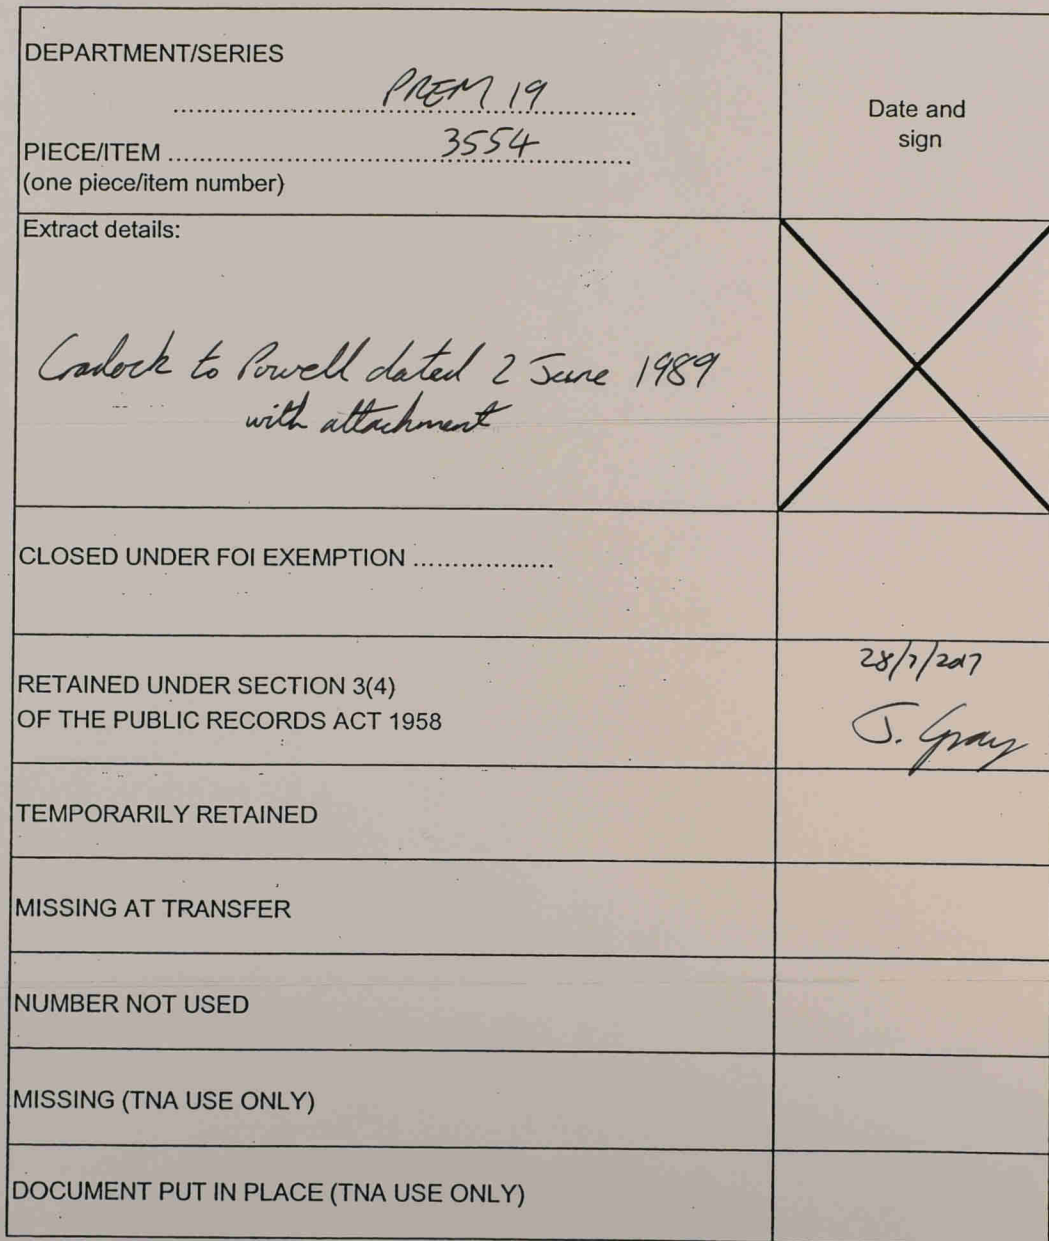 DEPARTMENT/SERIES
PREM 19
Date and
sign
PIECE/ITEM ........................................ 3554
(one piece/item number)
Extract details:
Cradock to Powell dated 2 June 1989
with attachment
CLOSED UNDER FOI EXEMPTION ..................
RETAINED UNDER SECTION 3(4)
OF THE PUBLIC RECORDS ACT 1958
28/7/2017
J. Gray
TEMPORARILY RETAINED
MISSING AT TRANSFER
NUMBER NOT USED
MISSING (TNA USE ONLY)
DOCUMENT PUT IN PLACE (TNA USE ONLY)